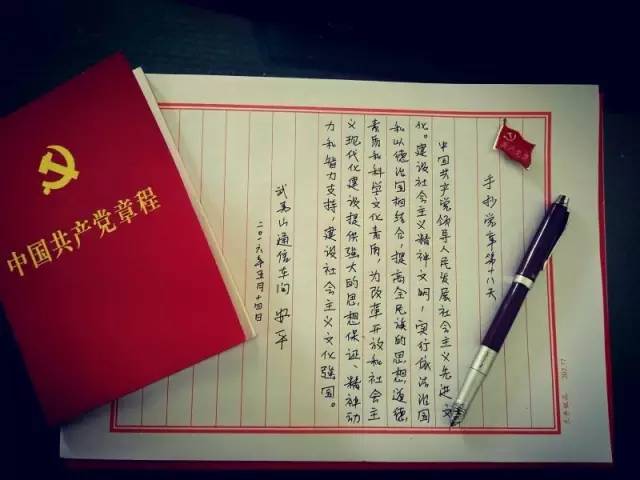 中国共产党章程
手抄党章第十八天
中国共产党领导人民发展社会主义先进文
化。建设社会主义精神文明,实行依法治国
和以德治国相结合,提高全民族的思想道德
素质和科学文化素质,为改革开放和社会主
义现代化建设提供强大的思想保证、精神动
力和智力支持,建设社会主义文化强国。
武夷山通信车间 安平
二〇一六年五月十四日